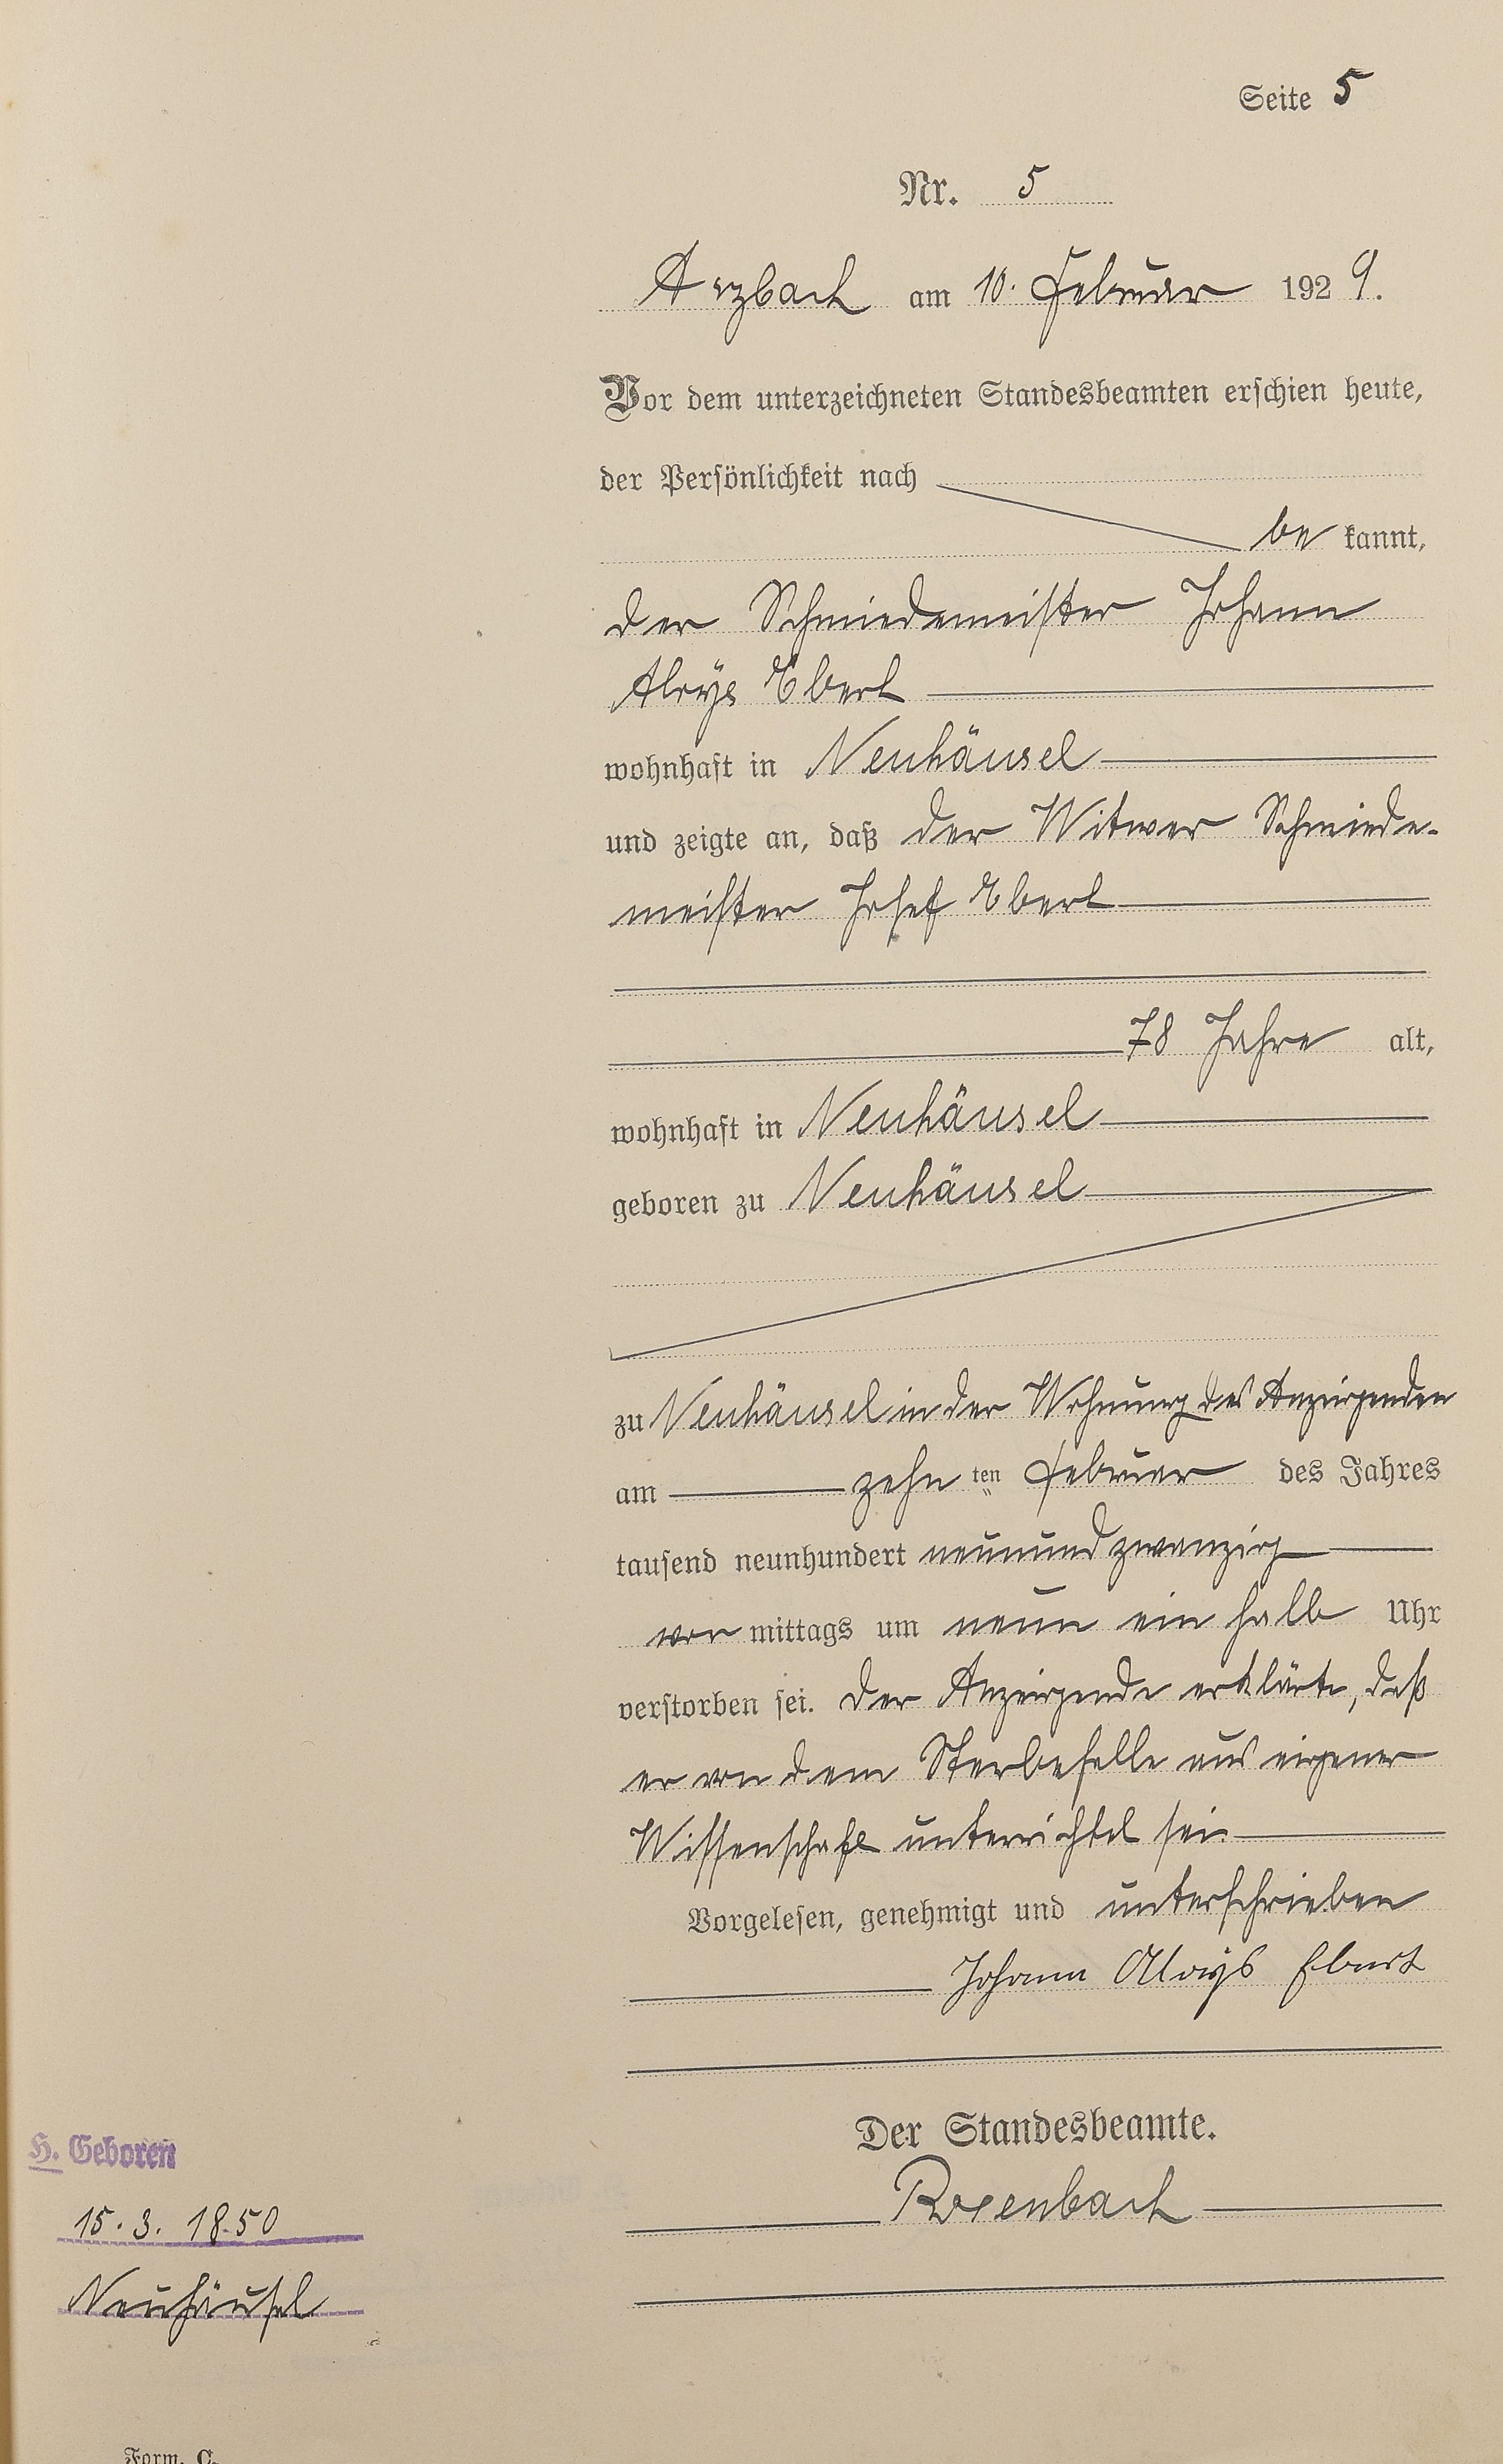 Seite 5
Nr. 5
Arzbach am 10. Februar 1929.
Vor dem unterzeichneten Standesbeamten erschien heute,
der Persönlichkeit nach
be kannt,
der Schmiedemeister Johann
Aloys Ebert
wohnhaft in Neuhäusel
und zeigte an, daß der Witwer Schmiede-
meister Josef Ebert
78 Jahre alt,
wohnhaft in Neuhäusel
geboren zu Neuhäusel
zu Neuhäusel in der Wohnung des Anzeigenden
am zehn ten Februar des Jahres
tausend neunhundert neunundzwanzig
vor mittags um neun ein halb Uhr
verstorben sei. Der Anzeigende erklärte, daß
er von dem Sterbefalle aus eigener
Wissenschaft unterrichtet sei.
Vorgelesen, genehmigt und unterschrieben
Johann Aloys Ebert
Der Standesbeamte.
Rosenbach
H. Geboren
15. 3. 1850
Neuhäusel
Form. C.